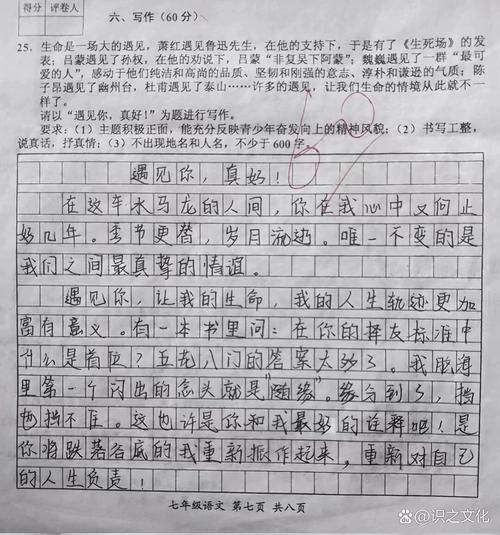 得分 评卷人
六、写作(60分)
25．生命是一场大的遇见，萧红遇见鲁迅先生，在他的支持下，于是有了《生死场》的发
表；吕蒙遇见了孙权，在他的劝说下，吕蒙“非复吴下阿蒙”；魏巍遇见了一群“最可
爱的人”，感动于他们纯洁和高尚的品质、坚韧和刚强的意志、淳朴和谦逊的气质；陈
子昂遇见了幽州台，杜甫遇见了泰山……许多的遇见，让我们生命的情境从此就不一
样了。
请以“遇见你，真好!”为题进行写作。
要求：(1)主题积极正面，能充分反映青少年奋发向上的精神风貌；(2)书写工整，
说真话，抒真情；(3)不出现地名和人名，不少于600字。
遇见你，真好！
在这车水马龙的人间，你在我心中又何止
好几年。季节更替，岁月流逝。唯一不变的是
我们之间最真挚的情谊。
遇见你，让我的生命，我的人生轨迹更加
富有意义。有一本书里问：在你的择友标准中
什么是首位？五花八门的答案太多了。我脑海
里第一个闪出的念头就是“随缘”。缘分到了，挡
也挡不住。这也许是你和我最好的诠释吧！是
你将跌落谷底的我重新振作起来，重新对自己
的人生负责！
七年级语文 第七页 共八页
识之文化